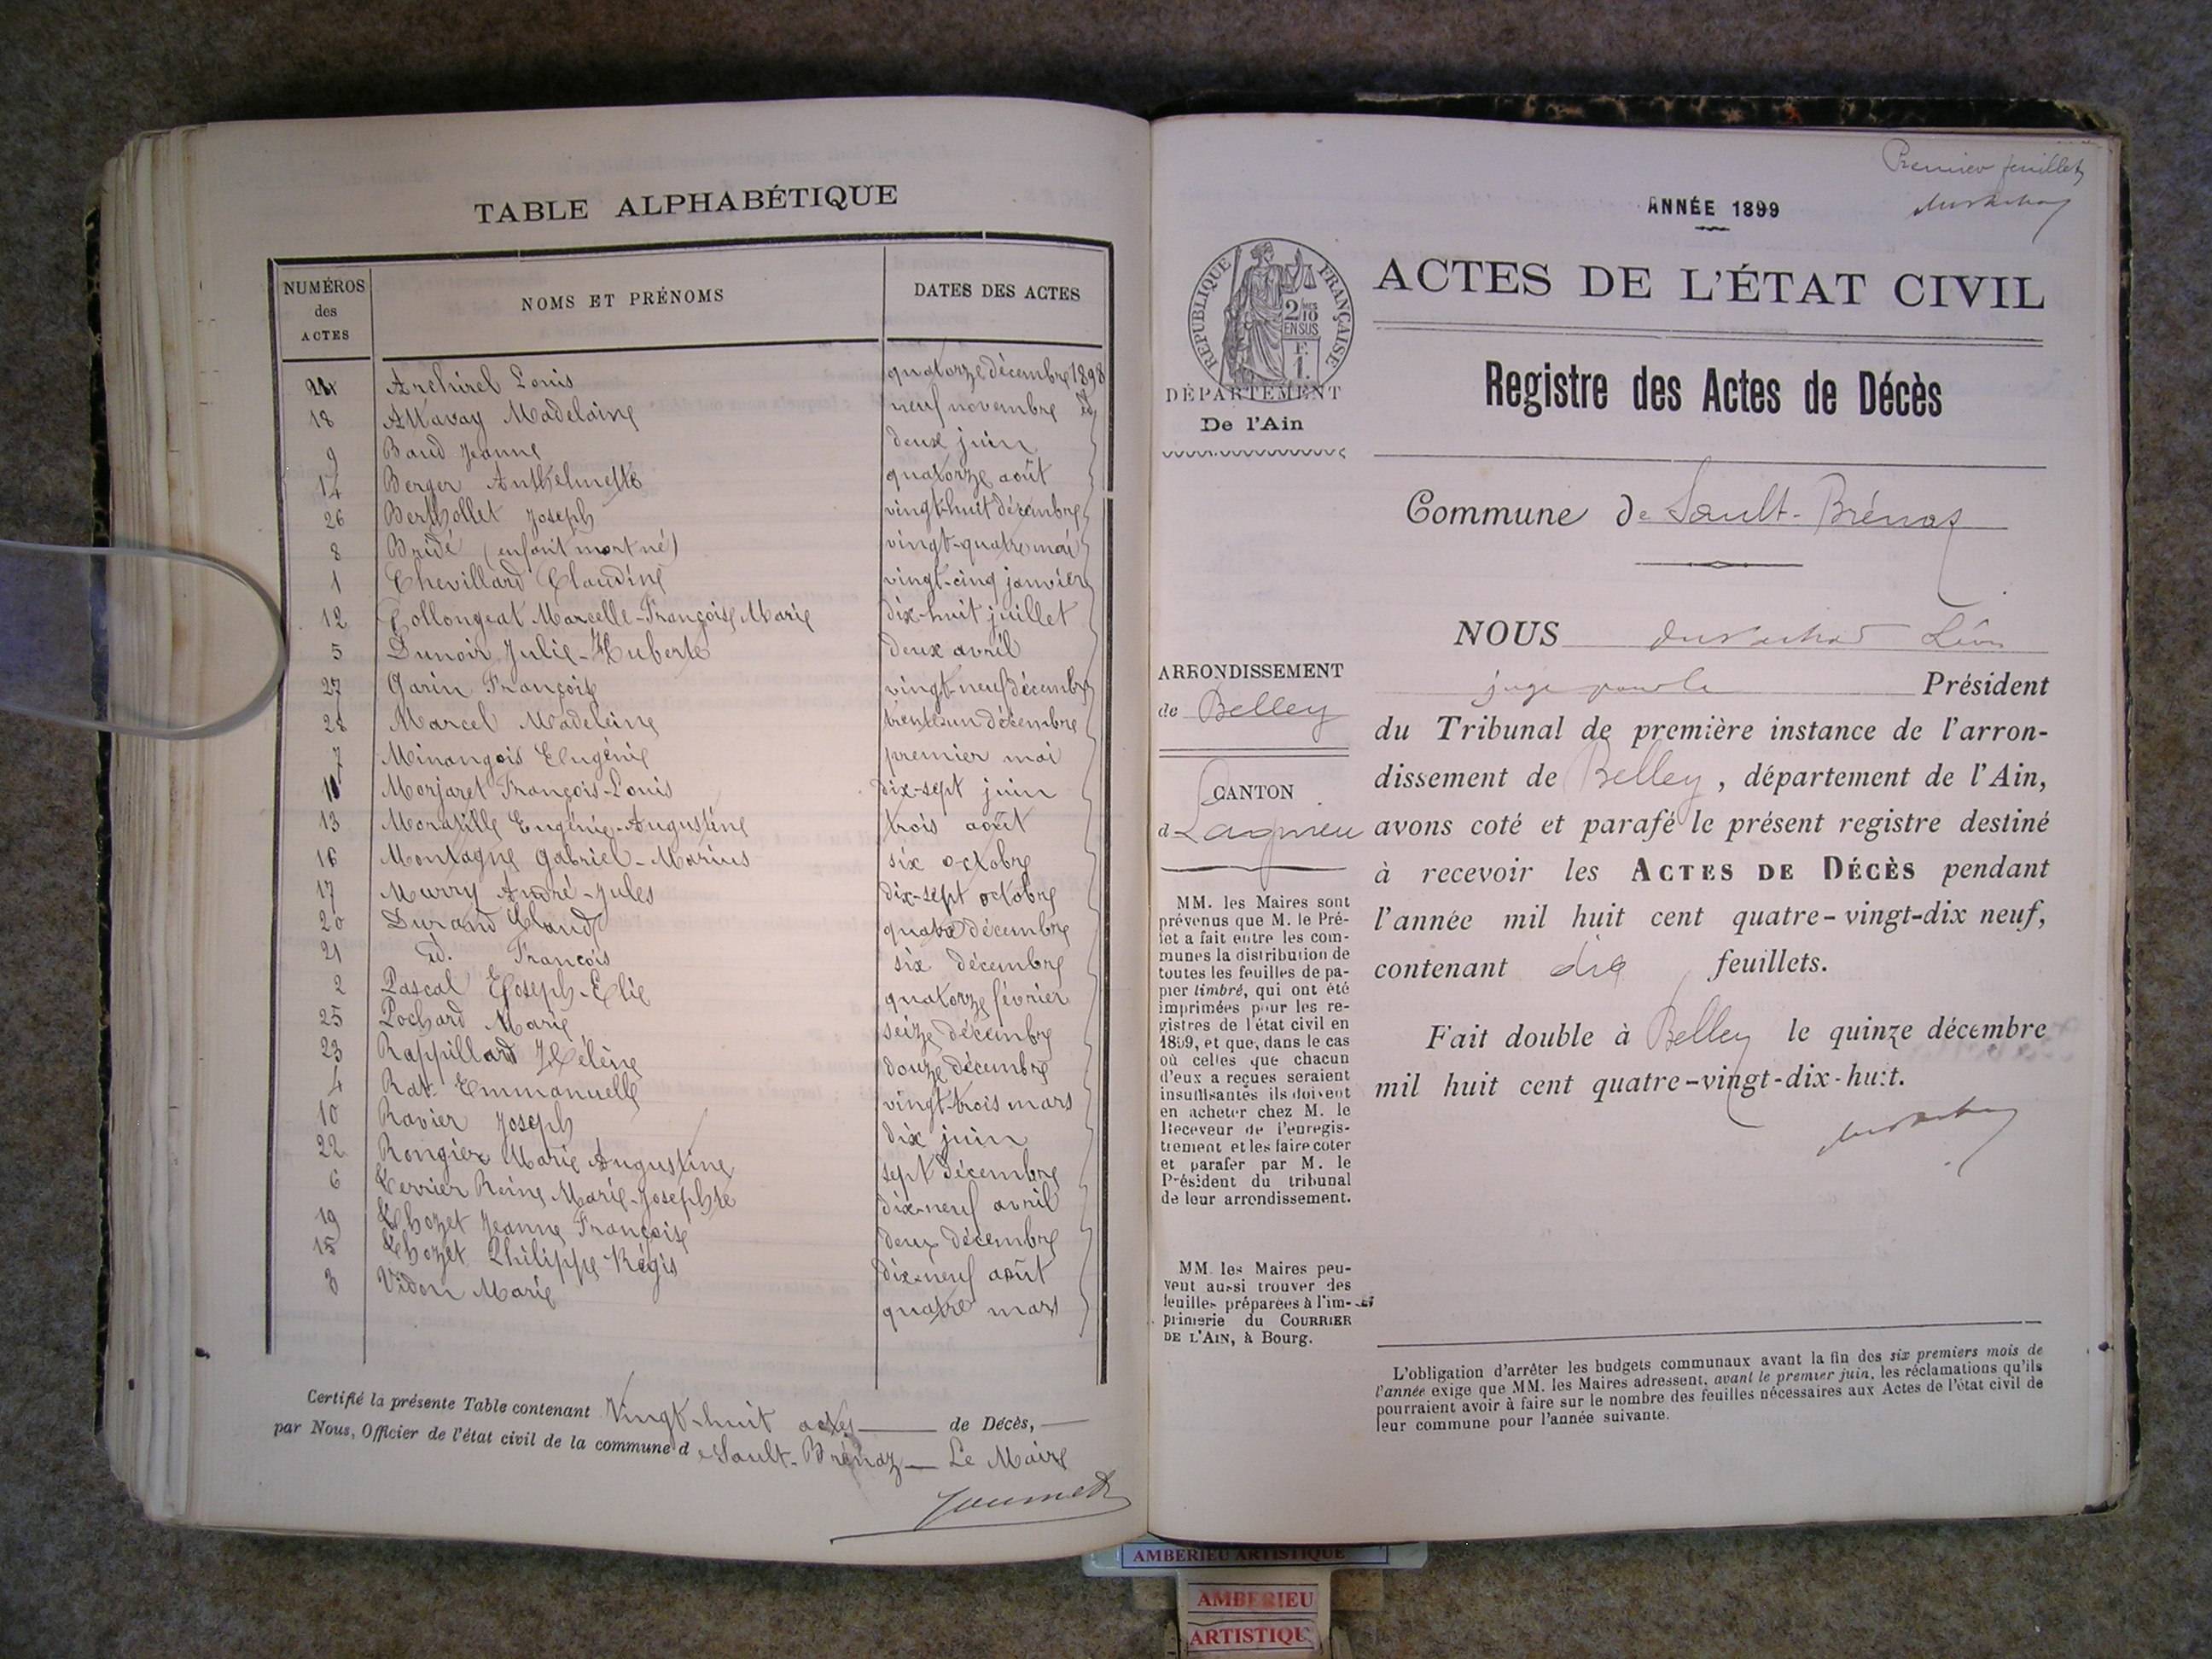 TABLE ALPHABÉTIQUE
NUMÉROS des ACTES NOMS ET PRÉNOMS DATES DES ACTES
24 Archirel Louis quatorze décembre 1898
18 Attavay Madelaine neuf novembre id
9 Baud Jeanne deux juin
14 Berger Anthelmette quatorze août
26 Berthollet Joseph vingt-huit décembre
8 Bridé (enfant mort né) vingt-quatre mai
1 Chevillard Claudine vingt-cinq janvier
12 Collongeat Marcelle-Françoise Marie dix-huit juillet
5 Dunoir Julie-Huberte deux avril
27 Garin Françoise vingt-neuf décembre
28 Marcel Madeleine trente-un décembre
7 Minangois Eugénie premier mai
11 Morjaret François-Louis dix-sept juin
13 Moratille Eugénie-Augustine trois août
16 Montagne Gabriel-Marius six octobre
17 Murry André-Jules dix-sept octobre
20 Durand Claude quatre décembre
21 id. François six décembre
2 Pascal Joseph-Elie quatorze février
25 Pochard Marie seize décembre
23 Rappillard Hélène douze décembre
4 Rat Emmanuelle vingt-trois mars
10 Ravier Joseph dix juin
22 Rongier Marie Augustine sept décembre
6 Terrier Reine Marie-Josephte dix-neuf avril
19 Thozet Jeanne Françoise deux décembre
15 Thozet Philippe Régis dix-neuf août
3 Vidon Marie quatre mars
Certifié la présente Table contenant Vingt-huit actes de Décès,
par Nous, Officier de l'état civil de la commune de Sault-Brénaz Le Maire
Premier feuillet
ANNÉE 1899
ACTES DE L'ÉTAT CIVIL
RÉPUBLIQUE FRANÇAISE
2/10 EN SUS
F. 1.
DÉPARTEMENT
De l'Ain
Registre des Actes de Décès
Commune de Sault-Brénaz
ARRONDISSEMENT
de Belley
CANTON
d Lagnieu
MM. les Maires sont
prévenus que M. le Pré-
fet a fait entre les com-
munes la distribution de
toutes les feuilles de pa-
pier timbré, qui ont été
imprimées pour les re-
gistres de l'état civil en
1899, et que, dans le cas
où celles que chacun
d'eux a reçues seraient
insuffisantes ils doivent
en acheter chez M. le
Receveur de l'enregis-
trement et les faire coter
et parafer par M. le
Président du tribunal
de leur arrondissement.
MM. les Maires peu-
vent aussi trouver des
feuilles préparées à l'im-
primerie du COURRIER
DE L'AIN, à Bourg.
NOUS Léon
juge pour le Président
du Tribunal de première instance de l'arron-
dissement de Belley, département de l'Ain,
avons coté et parafé le présent registre destiné
à recevoir les ACTES DE DÉCÈS pendant
l'année mil huit cent quatre-vingt-dix neuf,
contenant dix feuillets.
Fait double à Belley le quinze décembre
mil huit cent quatre-vingt-dix-huit.
L'obligation d'arrêter les budgets communaux avant la fin des six premiers mois de
l'année exige que MM. les Maires adressent, avant le premier juin, les réclamations qu'ils
pourraient avoir à faire sur le nombre des feuilles nécessaires aux Actes de l'état civil de
leur commune pour l'année suivante.
AMBERIEU ARTISTIQUE
AMBERIEU
ARTISTIQU